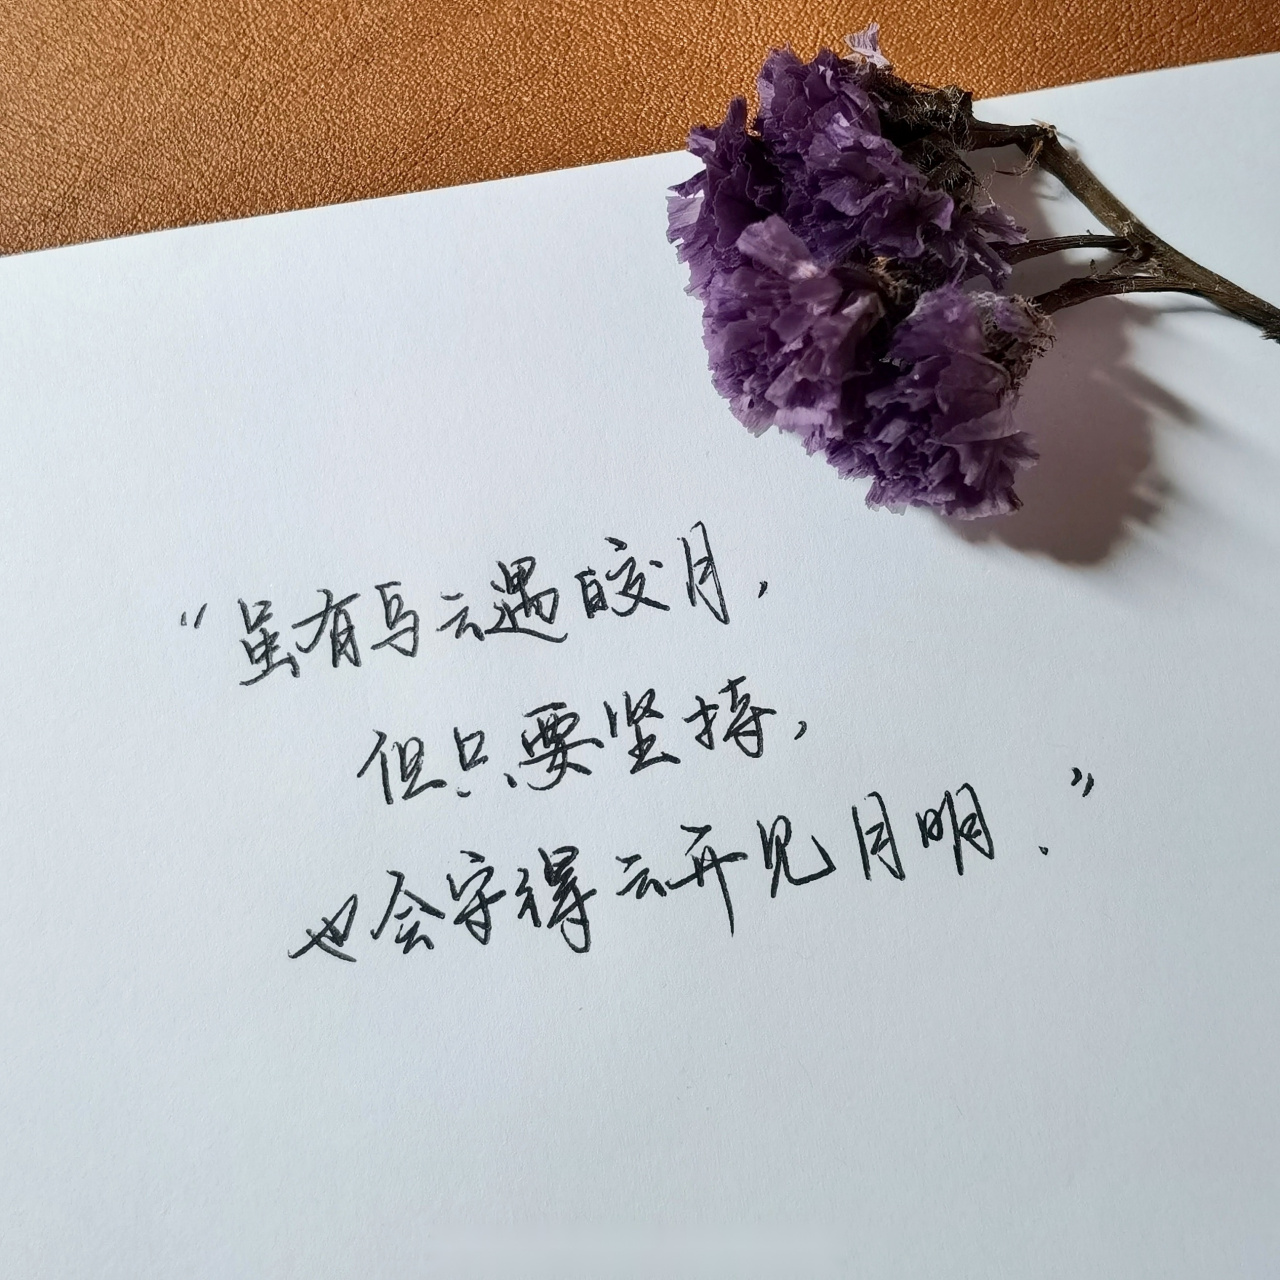 “虽有乌云遇皎月,
但只要坚持,
也会守得云开见月明.”